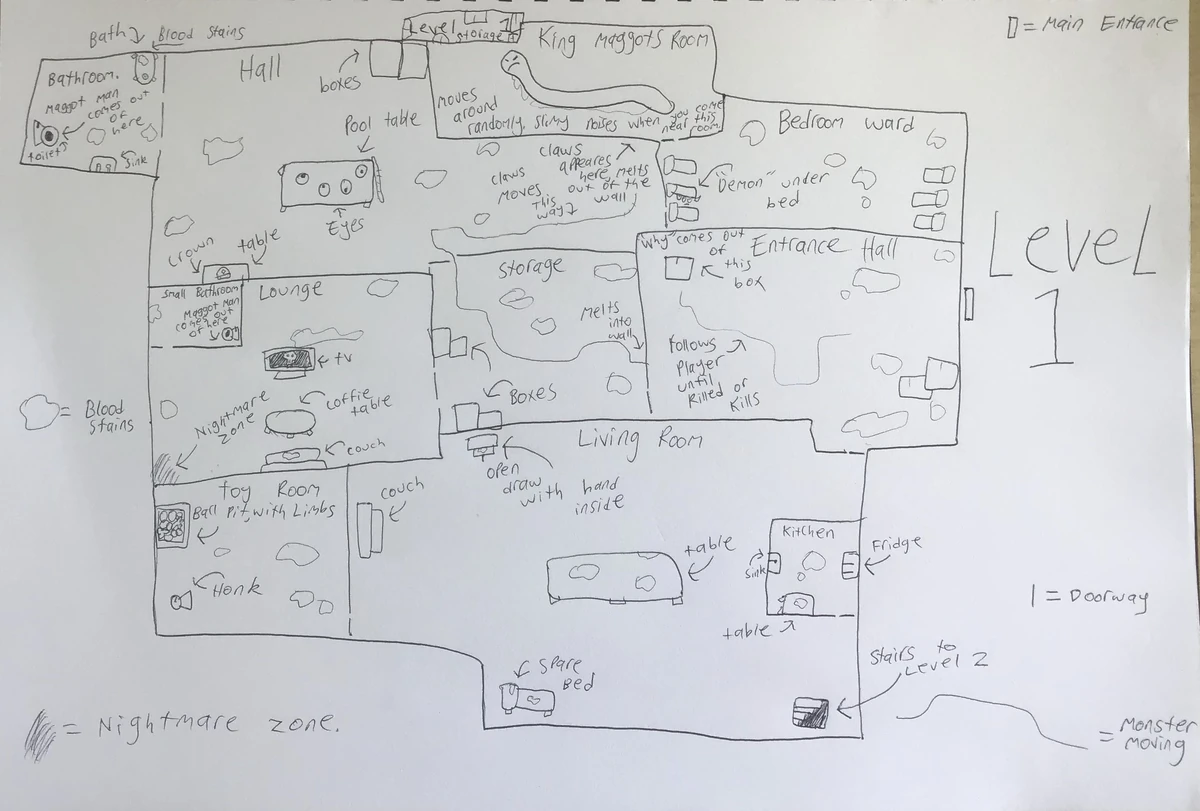 ▯ = Main Entrance
Bath
Blood Stains
Level 1
Storage
King Maggots Room
Bathroom.
Maggot Man
comes out
of
here
toilet
Sink
Hall
boxes
Pool table
Eyes
moves
around
randomly, slimy noises when you come
near this
room.
Bedroom ward
"Demon" under
bed
claws
appeares
here, melts
out of the
wall
claws
moves
this
way
crown
table
Small Bathroom
Maggot Man
comes out
of here
Lounge
tv
coffie
table
couch
Nightmare
zone
Storage
Melts
into
wall
Boxes
"Why" comes out
of
this
box
Entrance Hall
Follows
Player
until
killed or
kills
Level
1
= Blood
Stains
Toy Room
Ball
Pit, with Limbs
Honk
couch
Living Room
open
draw
with hand
inside
table
Kitchen
Sink
Fridge
table
Spare
Bed
Stairs to
Level 2
| = Doorway
= Nightmare zone.
= Monster
moving